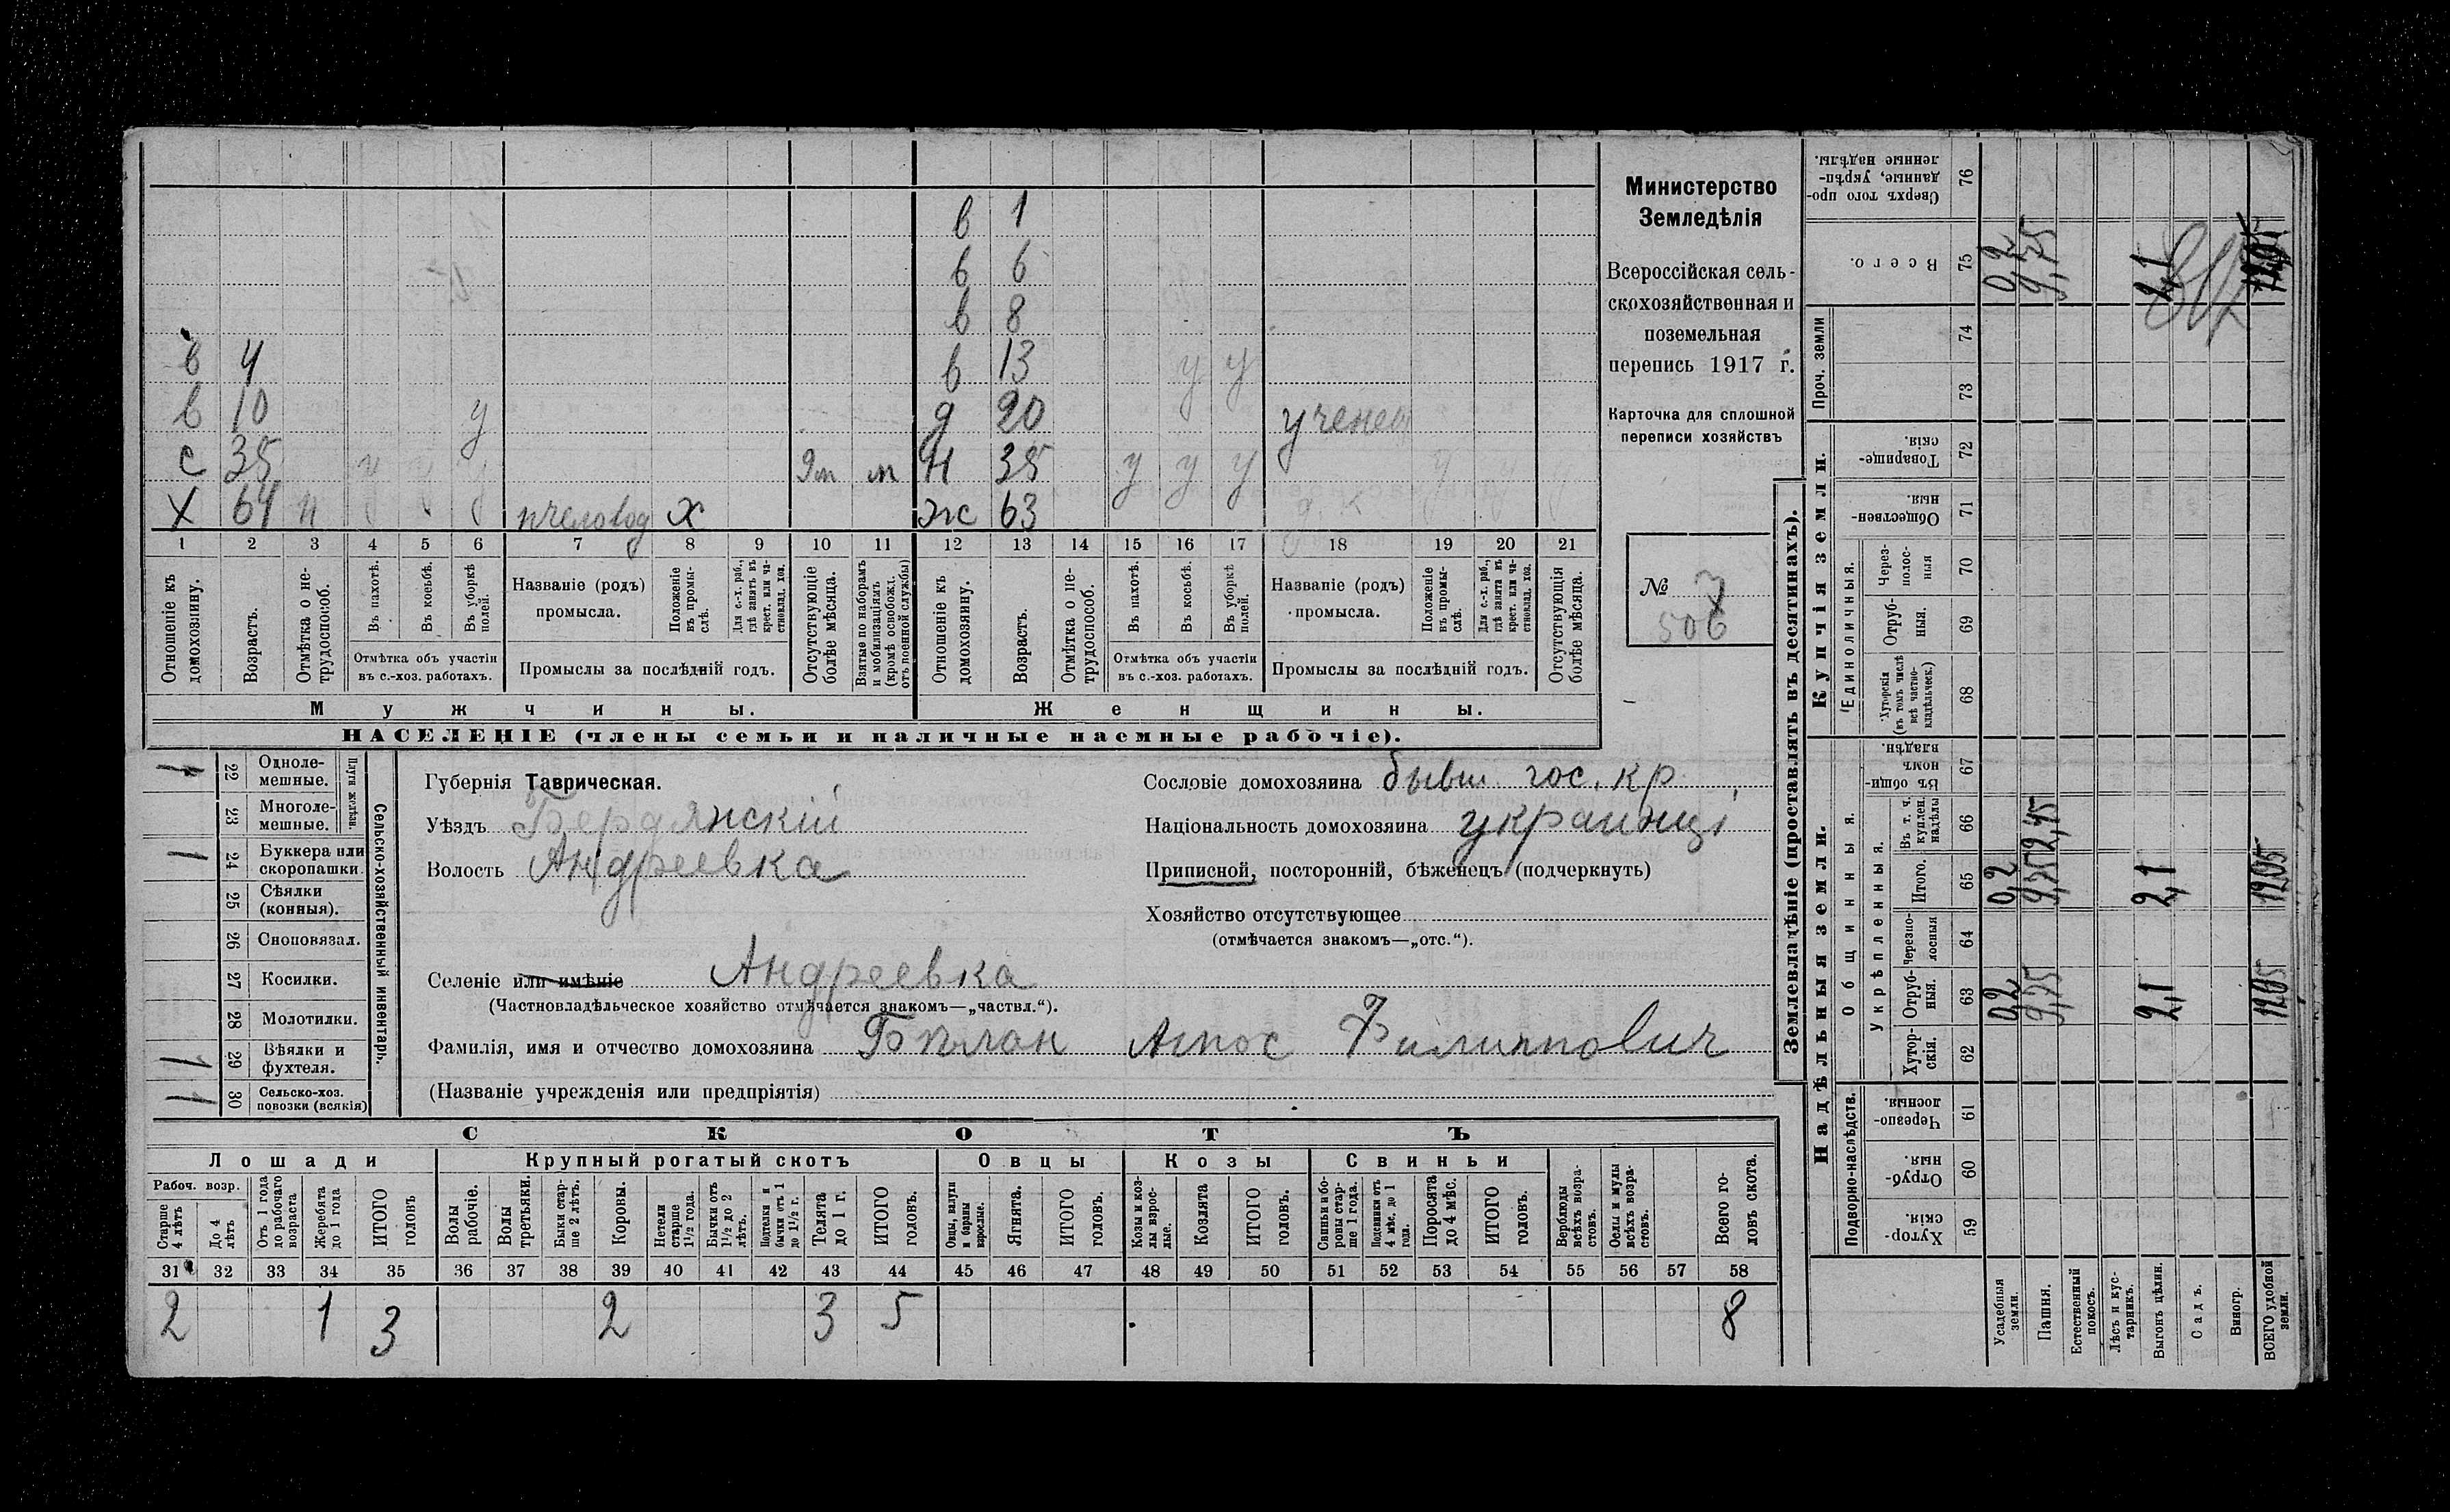 в 1
в 6
в 8
в 4 в 13 у у
в 10 у д 20 ученец
с 35 у у у 9м м н 35 у у у
х 64 н пчеловод х ж 63
1 2 3 4 5 6 7 8 9 10 11 12 13 14 15 16 17 18 19 20 21
Отношеніе къ домохозяину.
Возрастъ.
Отмѣтка о нетрудоспособ.
Въ пахотѣ.
Въ косьбѣ.
Въ уборкѣ полей.
Отмѣтка объ участіи
въ с.-хоз. работахъ.
Названіе (родъ)
промысла.
Положеніе въ промыслѣ.
Для с.-х. раб., гдѣ занятъ въ крест. или частновлад. хоз.
Промыслы за послѣдній годъ.
Отсутствующіе болѣе мѣсяца.
Взятые по наборамъ и мобилизаціямъ (кромѣ освобожд. отъ военной службы)
Отношеніе къ домохозяину.
Возрастъ.
Отмѣтка о нетрудоспособ.
Въ пахотѣ.
Въ косьбѣ.
Въ уборкѣ полей.
Отмѣтка объ участіи
въ с.-хоз. работахъ.
Названіе (родъ)
промысла.
Положеніе въ промыслѣ.
Для с.-х. раб., гдѣ занята въ крест. или частновлад. хоз.
Промыслы за послѣдній годъ.
Отсутствующія болѣе мѣсяца.
Мужчины.
Женщины.
НАСЕЛЕНІЕ (члены семьи и наличные наемные рабочіе).
Министерство
Земледѣлія
Всероссійская сель-
скохозяйственная и
поземельная
перепись 1917 г.
Карточка для сплошной
переписи хозяйствъ
№ 7
506
Сельско-хозяйственный инвентарь.
Плуги желѣзн.
1 22 Однолемешные.
23 Многолемешные.
1 24 Буккера или скоропашки.
25 Сѣялки (конныя).
26 Сноповязал.
27 Косилки.
28 Молотилки.
1 29 Вѣялки и фухтеля.
1 30 Сельско-хоз. повозки (всякія)
Губернія Таврическая.
Уѣздъ Бердянскій
Волость Андреевка
Сословіе домохозяина бывш. гос. кр
Національность домохозяина украинці
Приписной, посторонній, бѣженецъ (подчеркнуть)
Хозяйство отсутствующее
(отмѣчается знакомъ—„отс.“).
Селеніе или имѣніе Андреевка
(Частновладѣльческое хозяйство отмѣчается знакомъ—„частвл.“).
Фамилія, имя и отчество домохозяина Филиппович
(Названіе учрежденія или предпріятія)
СКОТЪ
Лошади Крупный рогатый скотъ Овцы Козы Свиньи
Рабоч. возр.
Старше 4 лѣтъ
До 4 лѣтъ
Отъ 1 года до рабочаго возраста
Жеребята до 1 года
ИТОГО головъ
Волы рабочіе.
Волы третьяки.
Быки старше 2 лѣтъ.
Коровы.
Нетели старше 1½ года.
Бычки отъ 1½ до 2 лѣтъ.
Подтелки и бычки отъ 1 до 1½ г.
Телята до 1 г.
ИТОГО головъ.
Овцы, валухи и бараны взрослые.
Ягнята.
ИТОГО головъ.
Козы и козлы взрослые.
Козлята
ИТОГО головъ.
Свиньи и боровы старше 1 года.
Подсвинки отъ 4 мѣс. до 1 года.
Поросята до 4 мѣс.
ИТОГО головъ.
Верблюды всѣхъ возрастовъ.
Ослы и мулы всѣхъ возрастовъ.
Всего головъ скота.
31 32 33 34 35 36 37 38 39 40 41 42 43 44 45 46 47 48 49 50 51 52 53 54 55 56 57 58
2 1 3 2 3 5 8
Землевладѣніе (проставлять въ десятинахъ).
Надѣльныя земли.
Купчія земли.
Проч. земли
Подворно-наслѣдств.
Общинныя.
Укрѣпленныя.
Единоличныя.
Хуторскія 59
Отрубныя. 60
Черезполосныя. 61
Хуторскія. 62
Отрубныя. 63
Черезполосныя 64
Итого. 65
Въ т. ч. куплен. надѣлы 66
Въ общинномъ владѣн. 67
Хуторскія (въ томъ числѣ всѣ частновладѣльческ.) 68
Отрубныя. 69
Черезполосныя 70
Общественныя. 71
Товарищескія. 72
73
74
Всего. 75
Сверхъ того проданные, укрѣпленные надѣлы. 76
Усадебныя земли. 0,2 0,2 0,2
Пашня. 9,75 9,75 2,45 9,75
Естественный покосъ.
Лѣсъ и кустарникъ.
Выгонъ цѣлин. 2,1 2,1 2,1
Садъ.
Виногр.
ВСЕГО удобной земли. 12,05 12,05